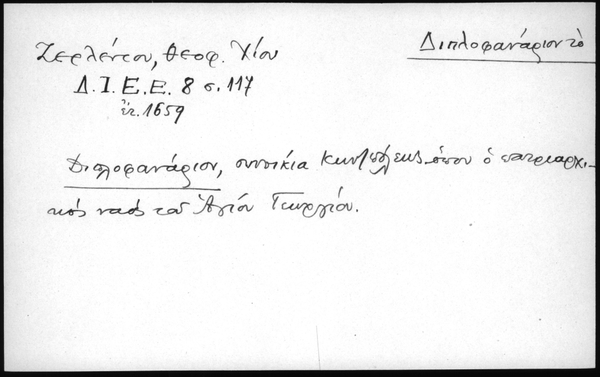 Διπλοφανάριον τὸ
Ζερλέντου, Θεοφ. Χίου
Δ.Ι.Ε.Ε. 8 σ. 117
ἔτ. 1659
Διπλοφανάριον, συνοικία Κων/πόλεως ὅπου ὁ πατριαρχι-
κὸς ναὸς τοῦ Ἁγίου Γεωργίου.